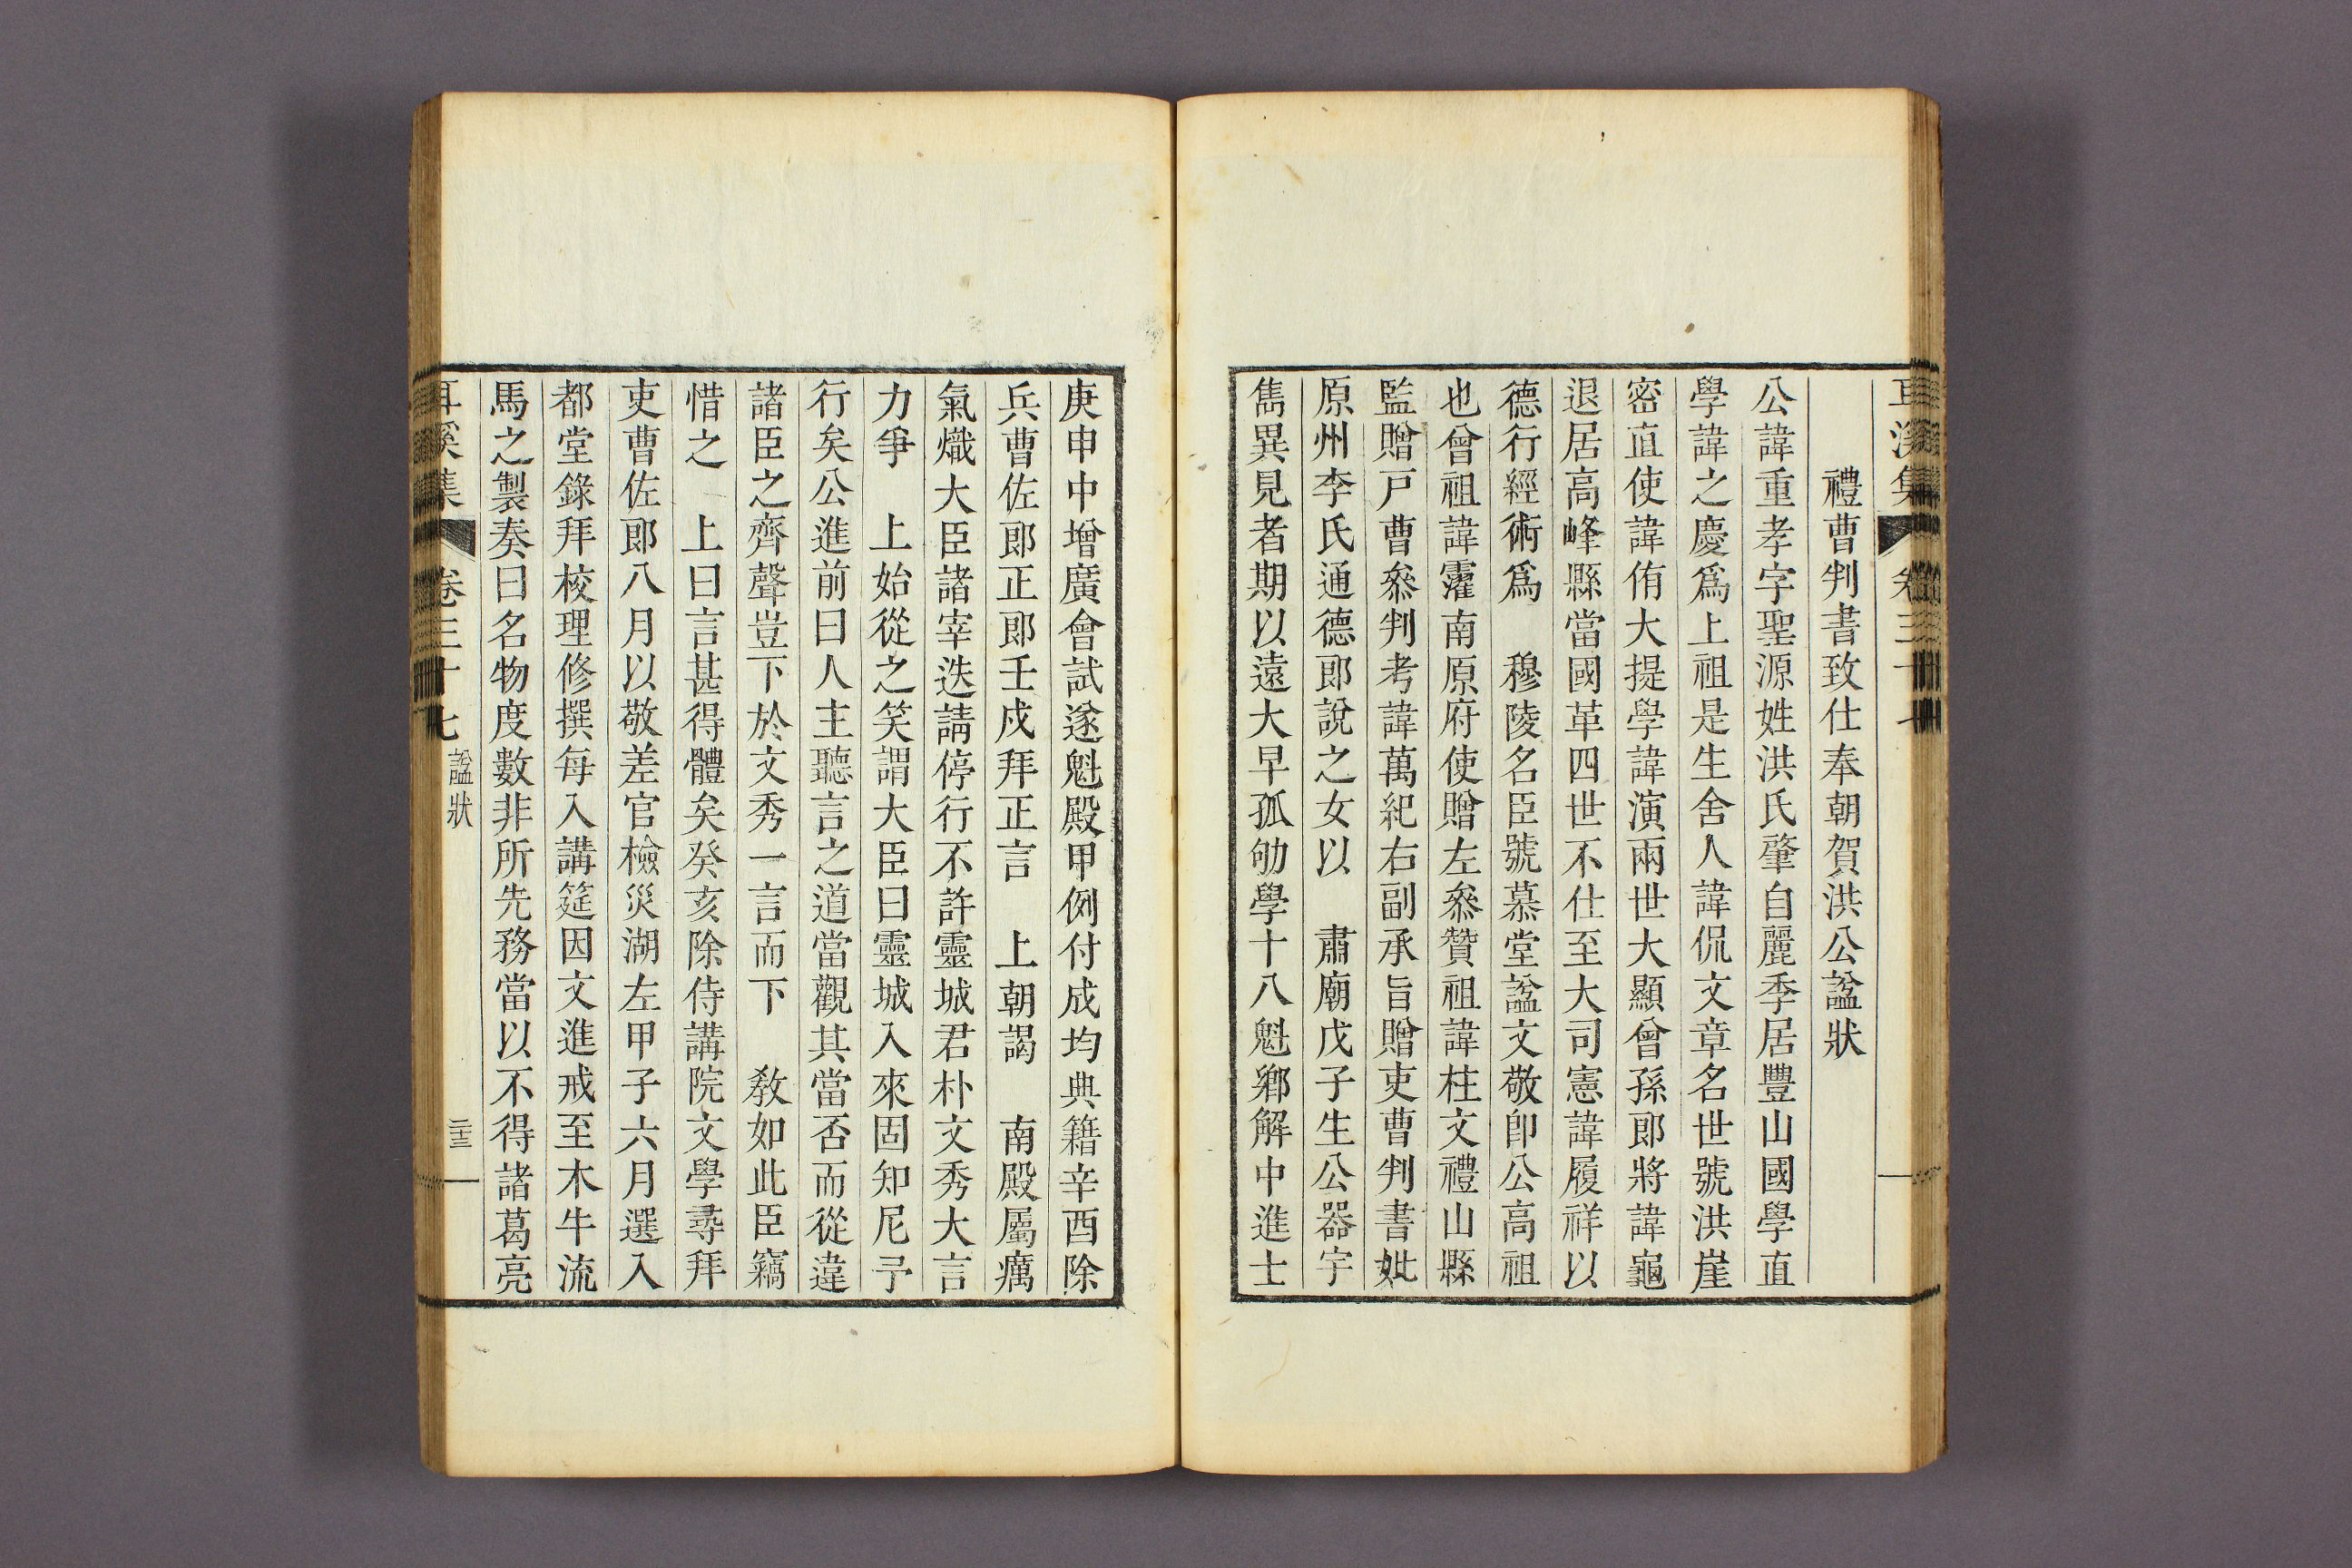 禮曹判書致仕奉朝賀洪公諡狀
公諱重孝字聖源姓洪氏肇自麗季居豐山國學直
學諱之慶爲上祖是生舍人諱侃文章名世號洪崖
密直使諱侑大提學諱演兩世大顯曾孫郎將諱龜
退居高峰縣當國革四世不仕至大司憲諱履祥以
德行經術爲 穆陵名臣號慕堂諡文敬卽公高祖
也曾祖諱霶南原府使贈左叅贊祖諱柱文禮山縣
監贈戸曹叅判考諱萬紀右副承旨贈吏曹判書妣
原州李氏通德郎說之女以 肅廟戊子生公器宇
雋異見者期以遠大早孤劬學十八魁鄕解中進士
庚申中增廣會試遂魁殿甲例付成均典籍辛酉除
兵曹佐郎正郎壬戌拜正言 上朝謁 南殿屬癘
氣熾大臣諸宰迭請停行不許靈城君朴文秀大言
力爭 上始從之笑謂大臣曰靈城入來固知尼予
行矣公進前曰人主聽言之道當觀其當否而從違
諸臣之齊聲豈下於文秀一言而下 敎如此臣竊
惜之 上曰言甚得體矣癸亥除侍講院文學尋拜
吏曹佐郎八月以敬差官檢災湖左甲子六月選入
都堂錄拜校理修撰每入講筵因文進戒至木牛流
馬之製奏曰名物度數非所先務當以不得諸葛亮
耳溪集 卷三十七 諡狀 二十三